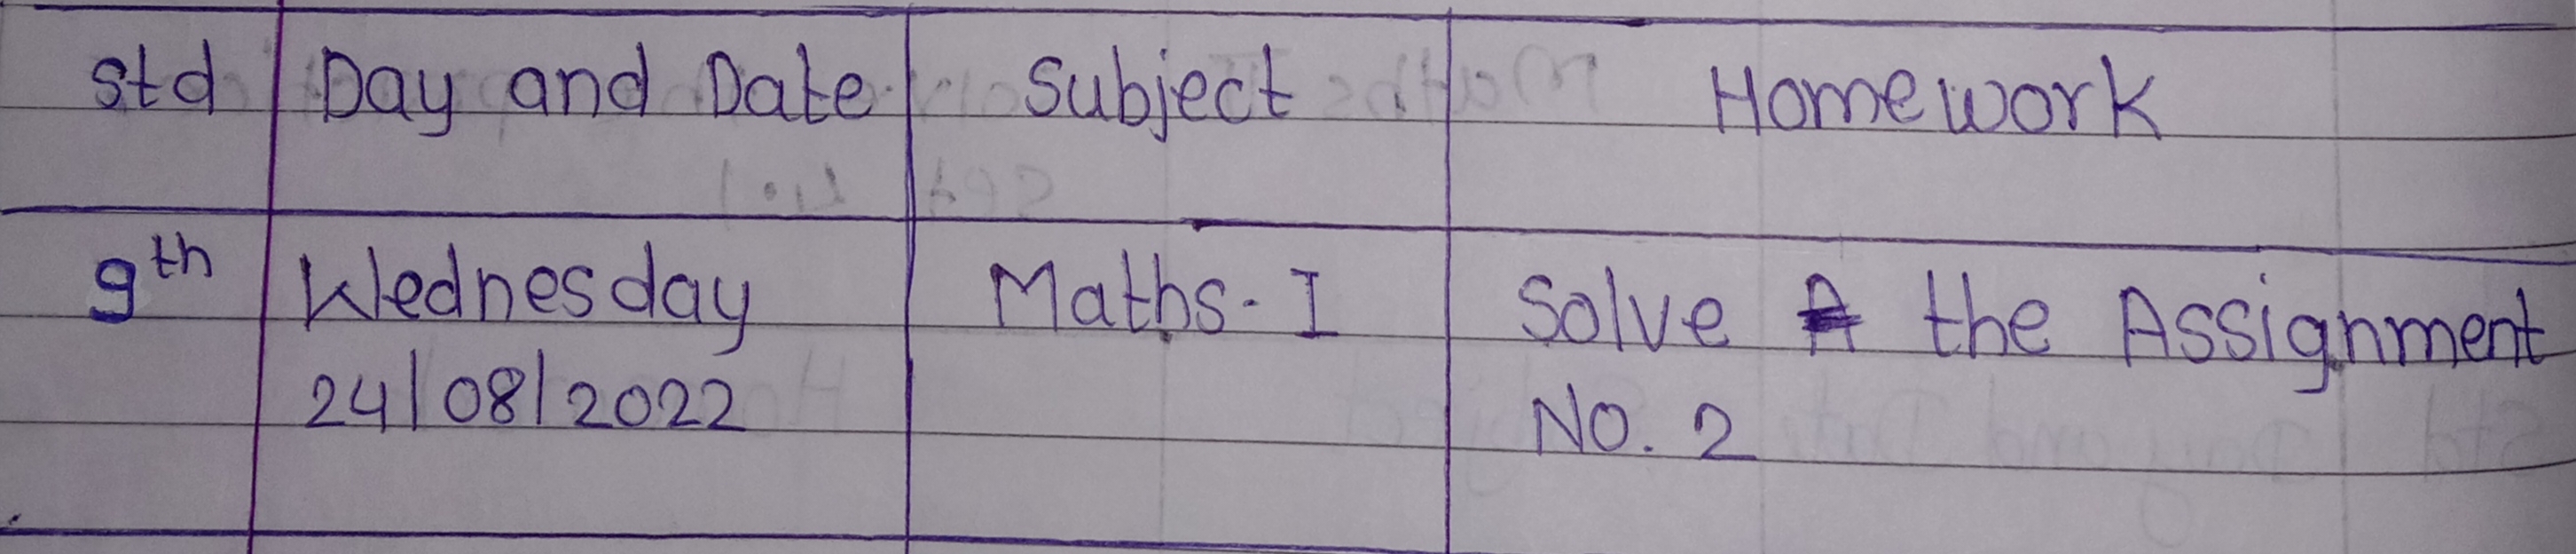 Std Day and Date Subject Homework
9th Wednesday Maths-I Solve the Assignment
24/08/2022 No. 2